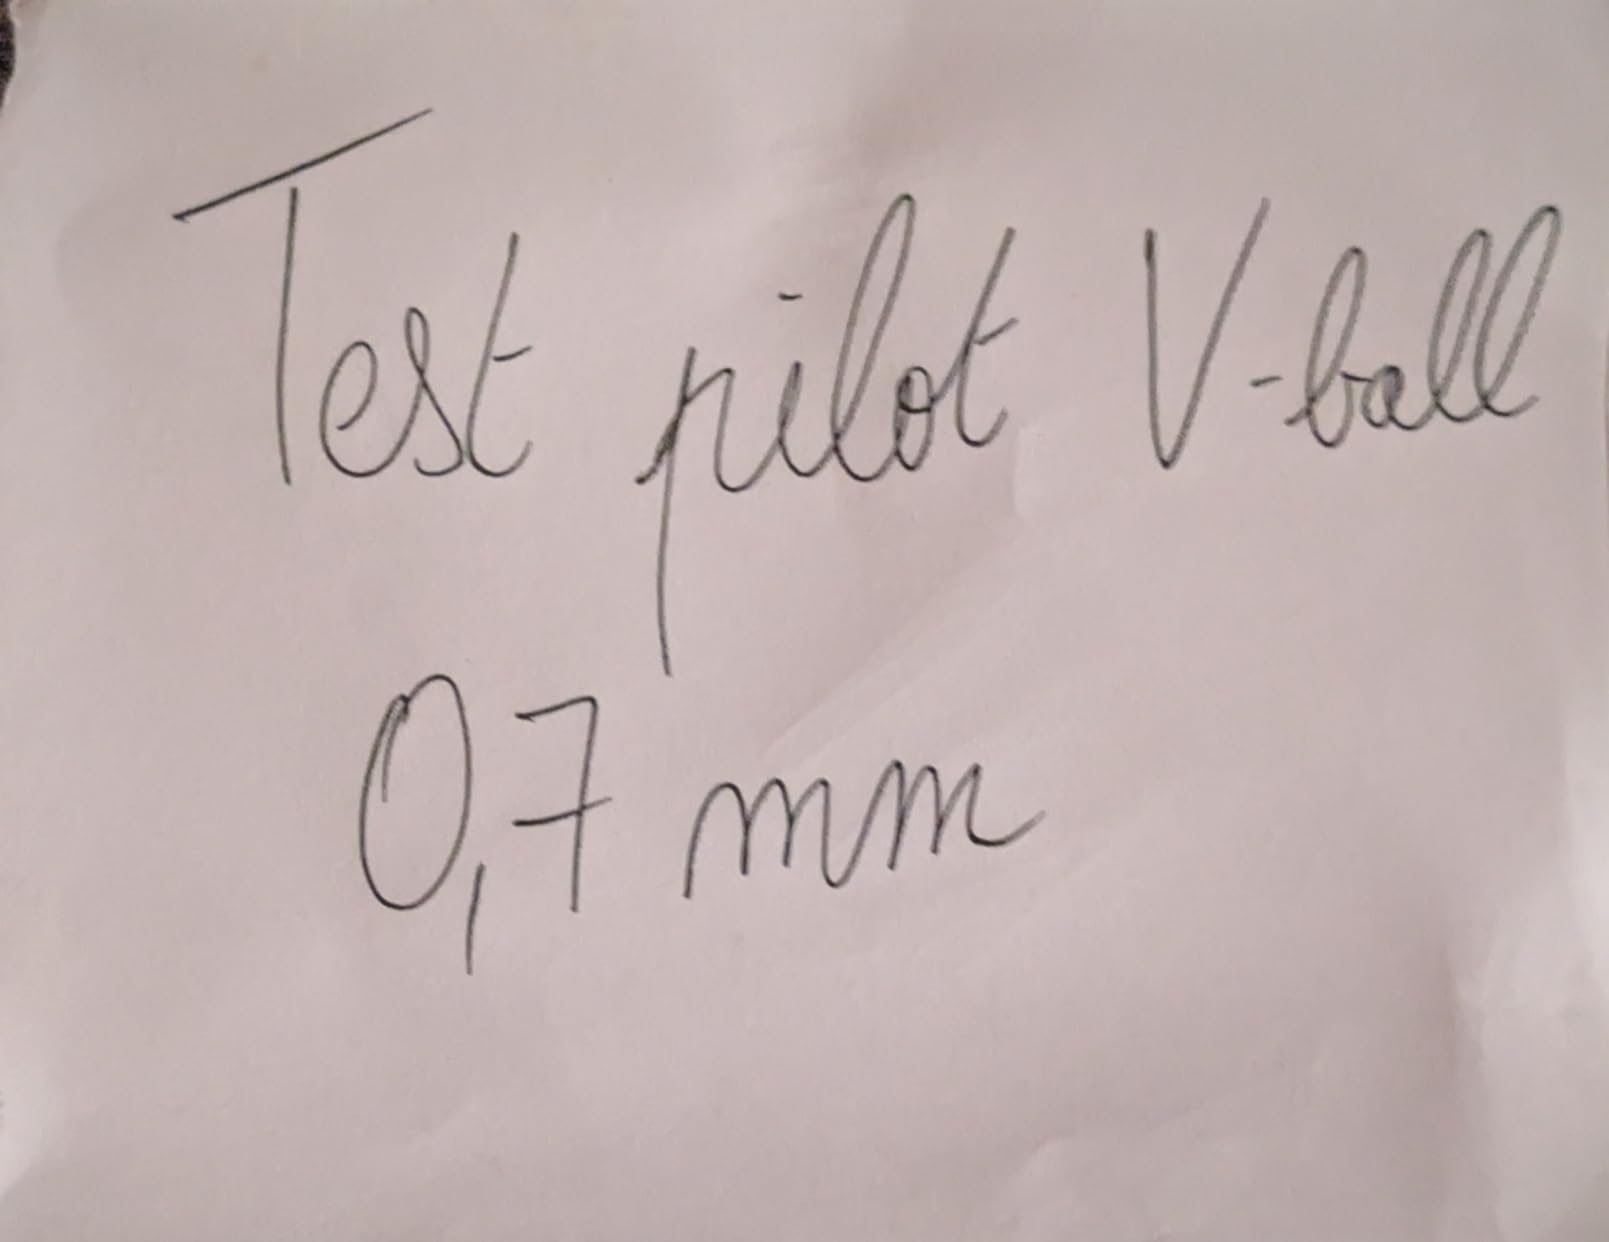 Test pilot V-ball
0,7 mm